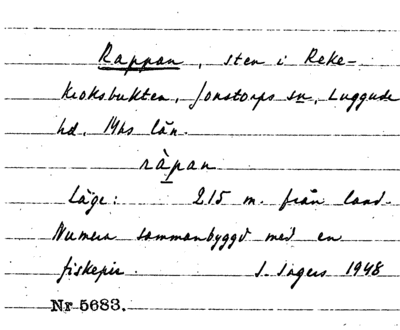 Rappan, sten i Reke-
kroksbukten, Jonstorps sn, Luggude
hd, Mhs län.
ràpan
Läge: 215 m. från land.
Numera sammanbyggd med en
fiskepir. J. Ingers 1948
Nr 5683.